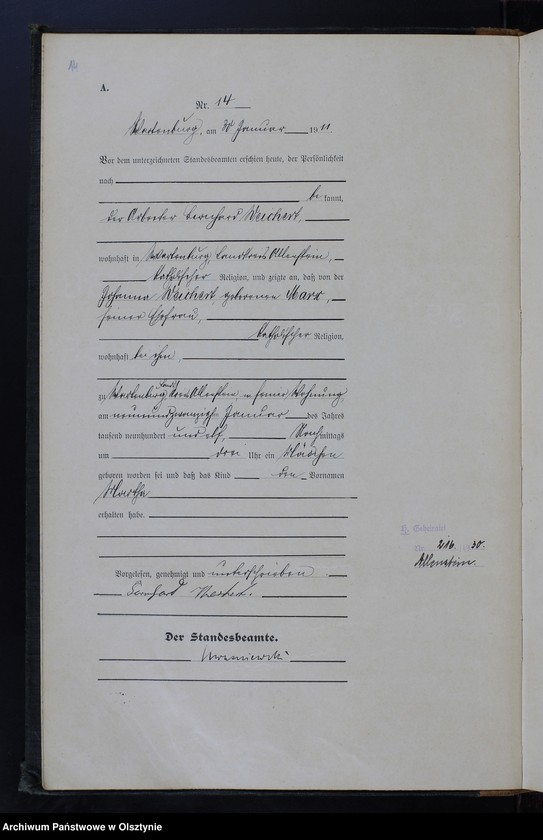 A.
Nr. 14
Wartenburg, am 30 Januar 1911.
Vor dem unterzeichneten Standesbeamten erschien heute, der Persönlichkeit
nach
be kannt,
der Arbeiter Bernhard Weichert,
wohnhaft in Wartenburg, Landkreis Allenstein,
katholischer Religion, und zeigte an, daß von der
Johanna Weichert, geborenen Marx,
seiner Ehefrau,
katholischer Religion,
wohnhaft bei ihm,
zu Wartenburg, Landkreis Allenstein, in seiner Wohnung
am neunundzwanzigsten Januar des Jahres
tausend neunhundert und elf, Nachmittags
um drei Uhr ein Mädchen
geboren worden sei und daß das Kind den Vornamen
Martha
erhalten habe.
Vorgelesen, genehmigt und unterschrieben
Bernhard Weichert.
Der Standesbeamte.
H. Geburtsr.
216 30.
Allenstein.
Archiwum Państwowe w Olsztynie